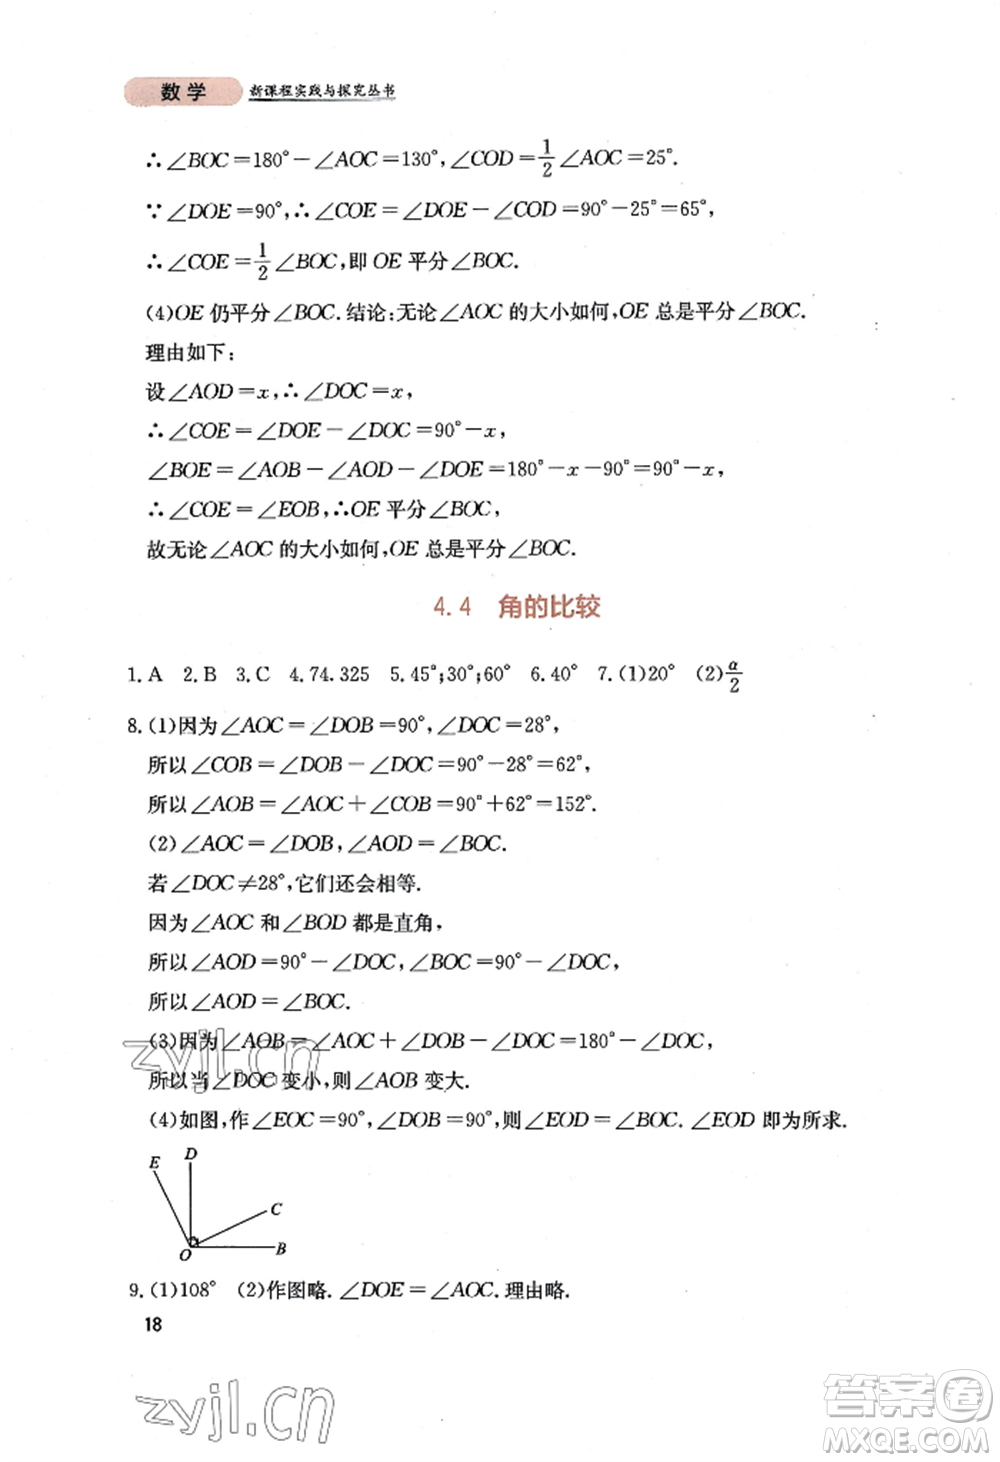 数学 新课程实践与探究丛书
∴∠BOC=180°-∠AOC=130°,∠COD=1/2∠AOC=25°.
∵∠DOE=90°,∴∠COE=∠DOE-∠COD=90°-25°=65°,
∴∠COE=1/2∠BOC,即OE平分∠BOC.
(4)OE仍平分∠BOC.结论:无论∠AOC的大小如何,OE总是平分∠BOC.
理由如下:
设∠AOD=x,∴∠DOC=x,
∴∠COE=∠DOE-∠DOC=90°-x,
∠BOE=∠AOB-∠AOD-∠DOE=180°-x-90°=90°-x,
∴∠COE=∠EOB,∴OE平分∠BOC,
故无论∠AOC的大小如何,OE总是平分∠BOC.
4.4 角的比较
1.A 2.B 3.C 4.74.325 5.45°;30°;60° 6.40° 7.(1)20° (2)α/2
8.(1)因为∠AOC=∠DOB=90°,∠DOC=28°,
所以∠COB=∠DOB-∠DOC=90°-28°=62°,
所以∠AOB=∠AOC+∠COB=90°+62°=152°.
(2)∠AOC=∠DOB,∠AOD=∠BOC.
若∠DOC≠28°,它们还会相等.
因为∠AOC和∠BOD都是直角,
所以∠AOD=90°-∠DOC,∠BOC=90°-∠DOC,
所以∠AOD=∠BOC.
(3)因为∠AOB=∠AOC+∠DOB-∠DOC=180°-∠DOC,
所以当∠DOC变小,则∠AOB变大.
(4)如图,作∠EOC=90°,∠DOB=90°,则∠EOD=∠BOC.∠EOD即为所求.
E D
C
O B
9.(1)108° (2)作图略.∠DOE=∠AOC.理由略.
18
zyjl.cn
zyjl.cn
答案圈
MXQE.COM